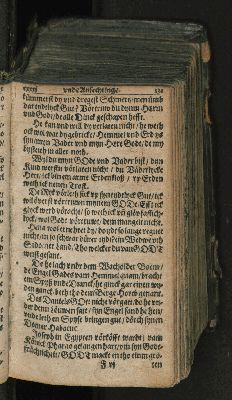 vnde Anfechtinge.
kümmerst dy vnd dregest Schmerten
dat tydelyck Gut? Vörtruw du dynem Herrn
vnd Gode, de alle Dinck geschapen hefft.
He kan vnd wil dy vorlaten nicht, he weth
ock wol wat dy gebrickt, Hemmel vnd Erd ys
syn, myn Vader vnd myn Here Gode, de my
bysteit in aller nodt.
Wyl du myn GOdt vnd Vader bist, dyn
Kind werstu vorlaten nicht, du Väderlycke
Here, ick bin ein arm Erdenkloth, vp Erden
weth ick neinen Trost.
De Ryke vörleth sick vp syn tydelick Gut, ick
wil överst vörtruwen mynem GOde. Efft ick
glyck werd vöracht, so weth ick vnd glöv fastich-
lyck, wol Gade vörtruwet, dem mangelt nicht.
Helia wol ernehret dy, do ydt so lange regnet
nicht, in so schwar dürer tydt ein Wedewe vth
Sidoner Land, Tho welcker du van GOdt
werst gesant.
Do he lach vnder dem Wacholder Boem,
de Engel Gades vam Hemmel quam, bracht
em Spyß vnde Dranck, he ginck gar einen wy-
den ganck, beth tho dem Berge Horeb genant.
Des Daniels GOdt nicht vörgat, do he vn-
der den Löuwen sat, syn Engel sand he hen,
vnd leth em Spyse bringen gut, dörch synen
Dener Habacuc.
Joseph in Egypten vörkofft wardt, vam
Köninck Pharao gefangen hart, vmb syn Godt-
früchticheit, GODT mackt en tho einem gro-
ten